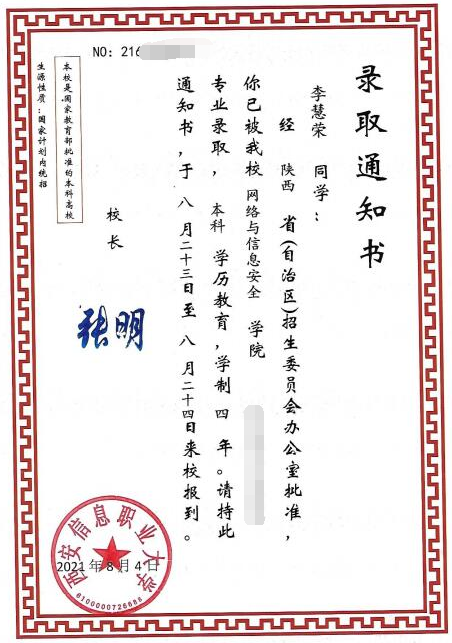 NO：216
录取通知书
李慧荣 同学：
经 陕西 省(自治区)招生委员会办公室批准，
你已被我校 网络与信息安全 学院
专业录取， 本科 学历教育，学制 四 年。请持此
通知书，于 八 月二十三日至 八 月二十四日来校报到。
校长
张明
本校是国家教育部批准的本科高校
生源性质：国家计划内统招
西安信息职业大学
2021 年 8 月 4 日
6100000726688